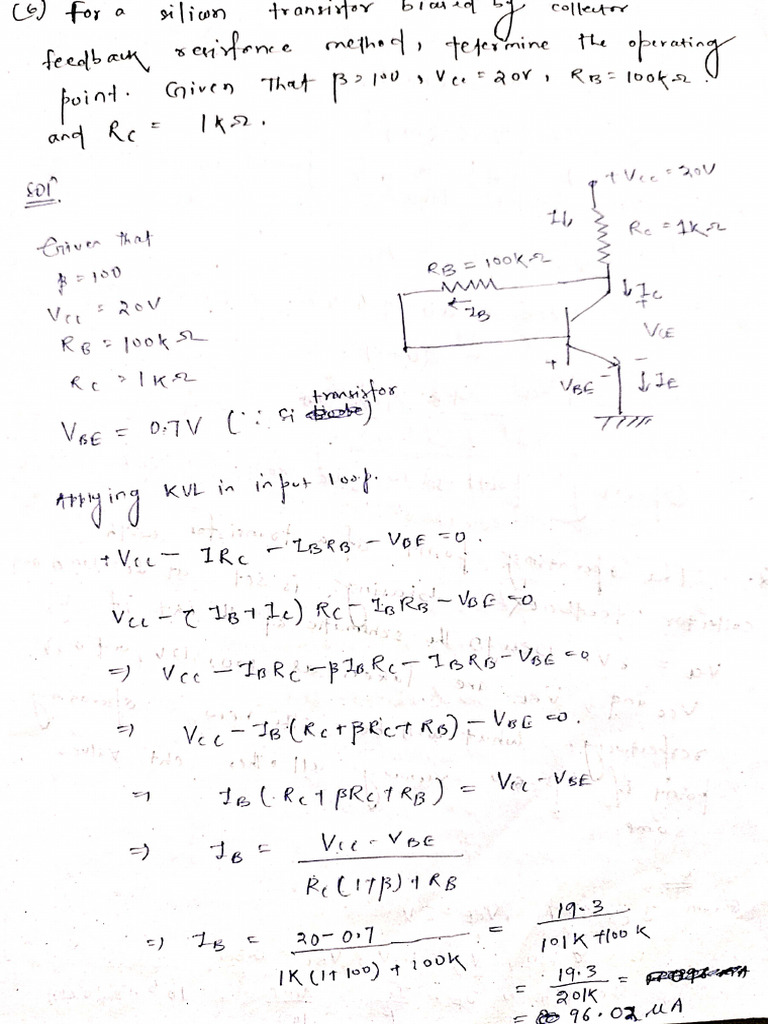 (6) For a silicon transistor biased by collector
feedback resistance method, determine the operating
point. Given That β = 100, Vcc = 20V, RB = 100kΩ
and RC = 1kΩ.
Solⁿ.
Given that
β = 100
Vcc = 20V
RB = 100kΩ
RC = 1kΩ
VBE = 0.7V (∵ Si transistor)
+Vcc = 20V
RC = 1kΩ
RB = 100kΩ
IB
↓IC
+
VCE
-
+
VBE
-
↓IE
Applying KVL in input loop.
+Vcc - IRC - IBRB - VBE = 0.
Vcc - (IB + IC) RC - IBRB - VBE = 0
⇒ Vcc - IBRC - βIBRC - IBRB - VBE = 0
⇒ Vcc - IB(RC + βRC + RB) - VBE = 0.
⇒ IB(RC + βRC + RB) = Vcc - VBE
⇒ IB = Vcc - VBE / RC(1+β) + RB
⇒ IB = 20 - 0.7 / 1K(1+100) + 100K = 19.3 / 101K + 100K
= 19.3 / 201K =
= 96.02 μA